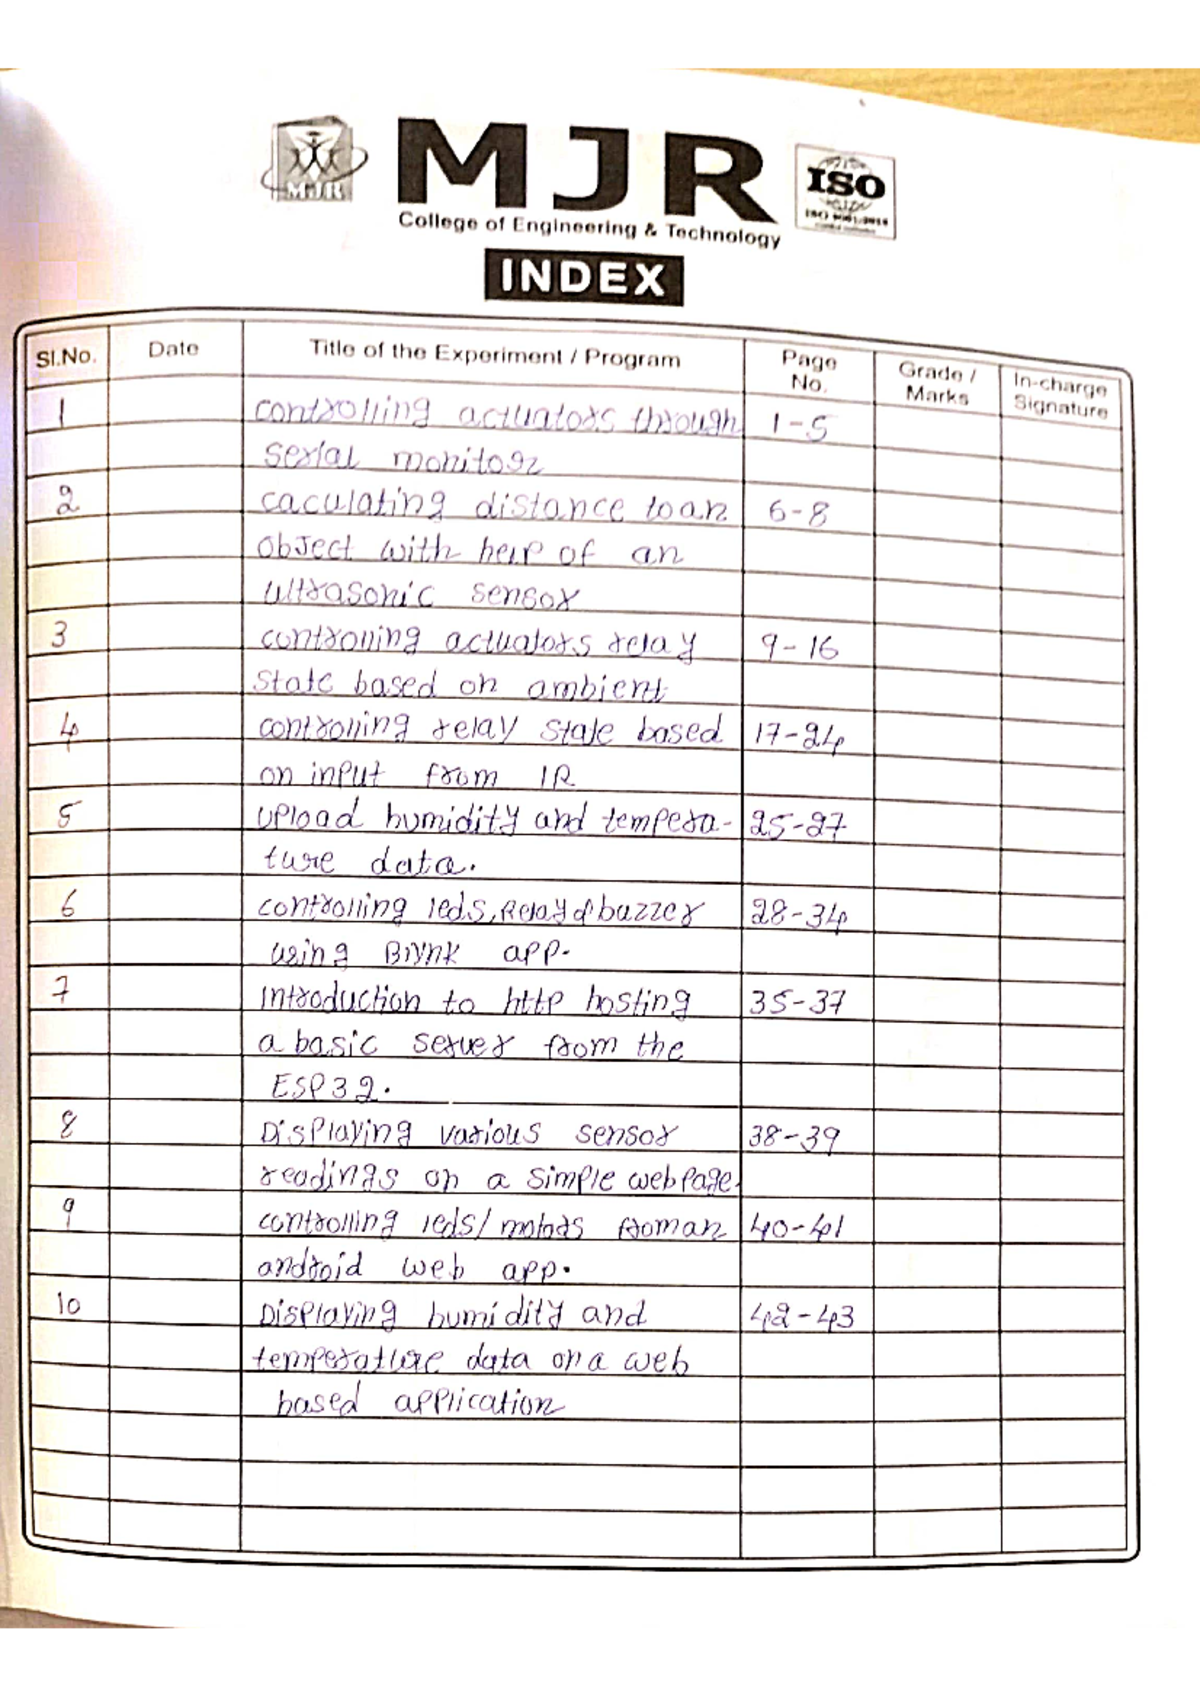 MJR
MJR
College of Engineering & Technology
ISO
ISO 9001:2015
INDEX
Sl.No. Date Title of the Experiment / Program Page No. Grade / Marks In-charge Signature
1 controlling actuators through 1-5
serial monitor
2 caculating distance to an 6-8
object with help of an
ultrasonic sensor
3 controlling actuators relay 9-16
state based on ambient
4 controlling relay state based 17-24
on input from IR
5 upload humidity and tempera- 25-27
ture data.
6 controlling leds, Relay & buzzer 28-34
using Blynk app.
7 Introduction to http hosting 35-37
a basic server from the
ESP32.
8 Displaying various sensor 38-39
readings on a simple webpage.
9 controlling leds/ motors from an 40-41
android web app.
10 Displaying humidity and 42-43
temperature data on a web
based application